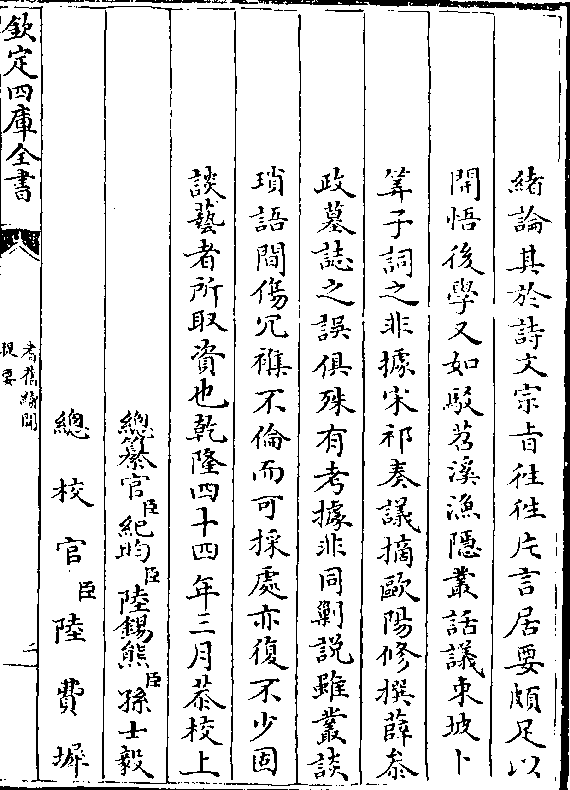 緒論其於詩文宗旨徃徃片言居要頗足以
開悟後學又如駁苕溪漁隱叢話議東坡卜
筭子詞之非據宋祁奏議摘歐陽修撰薛叅
政墓誌之誤俱殊有考據非同勦説雖叢談
瑣語間傷冗襍不倫而可採處亦復不少固
談藝者所取資也乾隆四十四年三月恭校上
總纂官臣紀昀臣陸錫熊臣孫士毅
總校官臣陸費墀
欽定四庫全書
耆舊續聞
提要
二